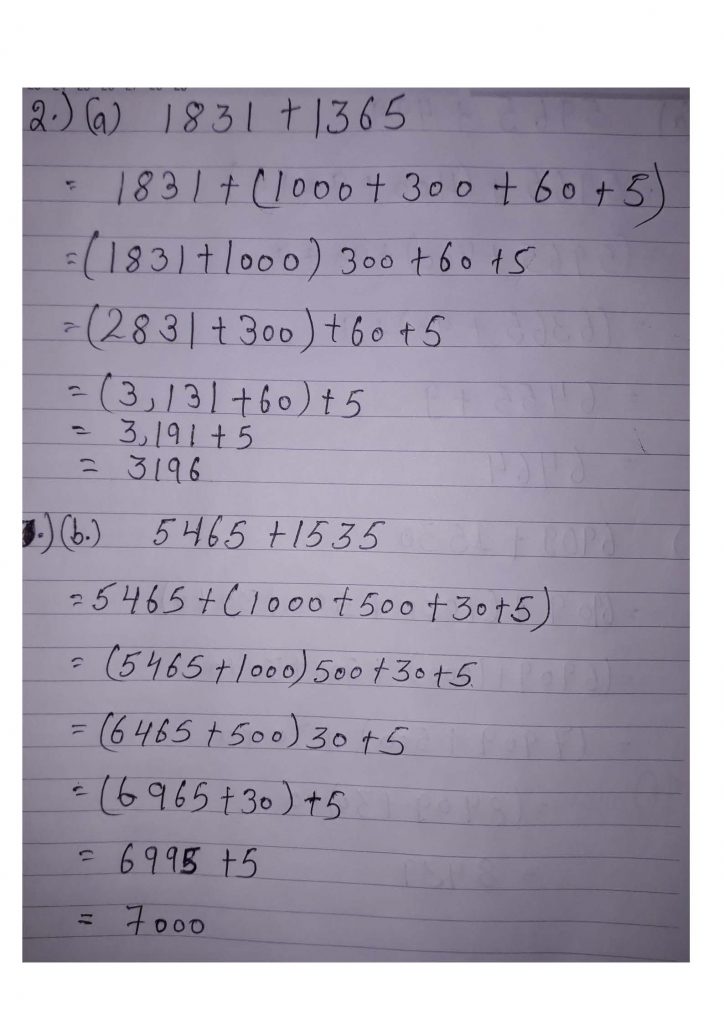 2.) (a) 1831 + 1365
= 1831 + (1000 + 300 + 60 + 5)
= (1831 + 1000) 300 + 60 + 5
= (2831 + 300) + 60 + 5
= (3,131 + 60) + 5
= 3,191 + 5
= 3196
.) (b.) 5465 + 1535
= 5465 + (1000 + 500 + 30 + 5)
= (5465 + 1000) 500 + 30 + 5
= (6465 + 500) 30 + 5
= (6965 + 30) + 5
= 6995 + 5
= 7000